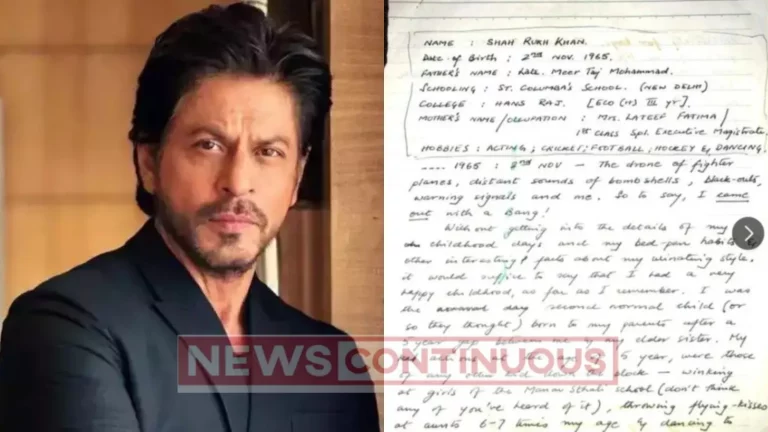 NAME : SHAH RUKH KHAN.
Date of Birth : 2ND NOV. 1965.
FATHER'S NAME : Late. Meer Taj Mohammad.
SCHOOLING : ST. COLUMBA'S SCHOOL. (NEW DELHI)
COLLEGE : HANS RAJ. [ECO (H) III yr].
MOTHER'S NAME/OCCUPATION : MRS. LATEEF FATIMA/
1st CLASS Spl. Executive Magistrate
HOBBIES : ACTING; CRICKET; FOOTBALL; HOCKEY & DANCING.
.... 1965 : 2ND NOV — The drone of fighter
planes, distant sounds of bombshells, black-outs,
warning signals and me. So to say, I came
out with a Bang!
Without getting into the details of my
childhood days and my bed-pan habits &
other interesting facts about my urinating style,
it would suffice to say that I had a very
happy childhood, as far as I remember. I was
the second normal child (or
so they thought) born to my parents after a
5 year gap between me & my elder sister. My
year, were those
of any other kid down the block — winking
at girls of the Manav Sthali school (don't think
any of you've heard of it), throwing flying-kisses
at aunts 6-7 times my age & dancing to
NEWS CONTINUOUS